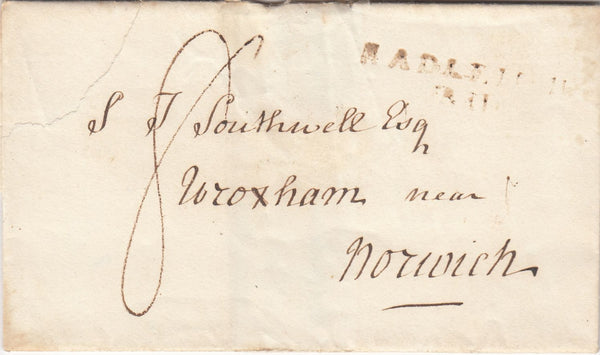 HADLEIGH
S J Southwell Esq
Wroxham near
Norwich
8